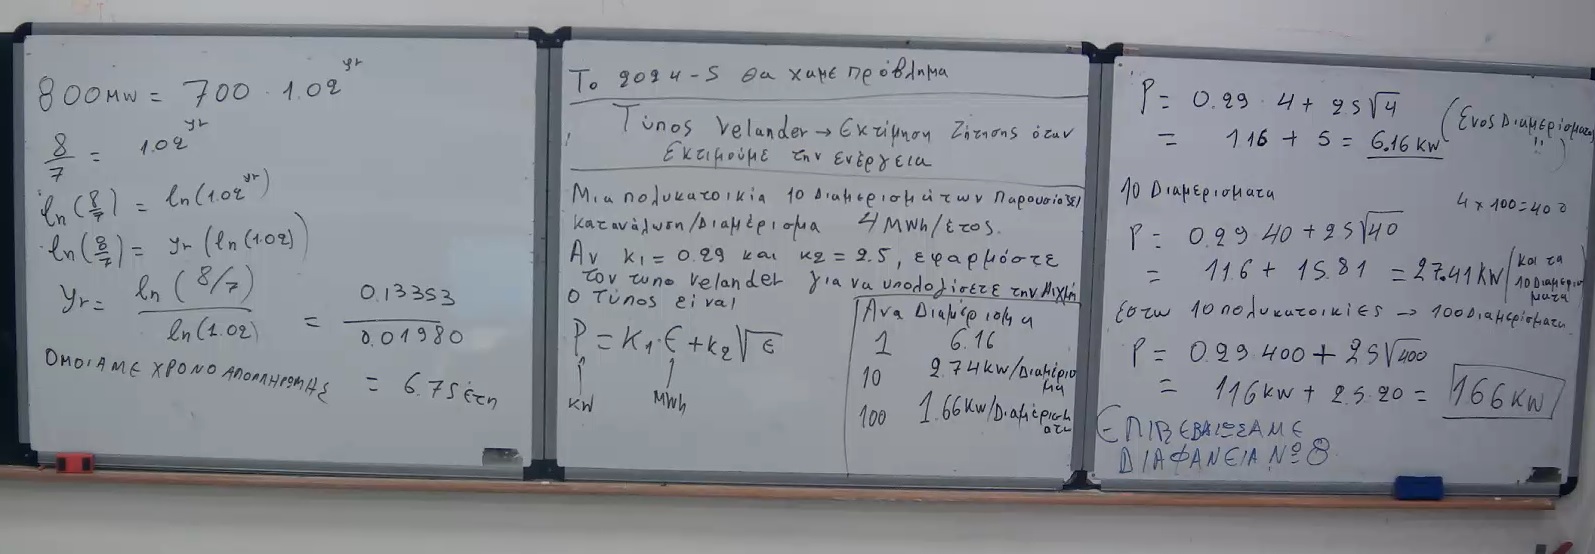 800MW = 700 · 1.02^yr
8/7 = 1.02^yr
ln(8/7) = ln(1.02^yr)
ln(8/7) = yr(ln(1.02))
yr = ln(8/7) / ln(1.02) = 0.13353 / 0.01980
ΟΜΟΙΑ ΜΕ ΧΡΟΝΟ ΑΠΟΠΛΗΡΩΜΗΣ = 6.75 έτη
Το 2024-5 θα χαμε πρόβλημα
Τύπος Velander → Εκτίμηση Ζήτησης όταν
Εκτιμούμε την ενέργεια
Μια πολυκατοικία 10 Διαμερισμάτων Παρουσιάζει
κατανάλωση/Διαμέρισμα 4 MWh/έτος.
Αν κ1 = 0.29 και κ2 = 2.5, εφαρμόστε
τον τυπο velander για να υπολογίσετε την Αιχμή
Ο Τύπος είναι
P = K1·E + K2√E
KW MWh
Ανα Διαμέρισμα
1 6.16
10 2.74 KW/Διαμέρισμα
100 1.66 KW/Διαμέρισμα
P = 0.29 · 4 + 2.5√4
= 1.16 + 5 = 6.16 KW (Ενός Διαμερίσματος !!)
10 Διαμερίσματα
4 x 100 = 400
P = 0.29 · 40 + 2.5√40
= 11.6 + 15.81 = 27.41 KW (και τα 10 Διαμερίσματα
έστω 10 πολυκατοικίες → 100 Διαμερίσματα
P = 0.29 · 400 + 2.5√400
= 116 KW + 2.5 · 20 = 166 KW
ΕΠΙΒΕΒΑΙΩΣΑΜΕ
ΔΙΑΦΑΝΕΙΑ Νº 8